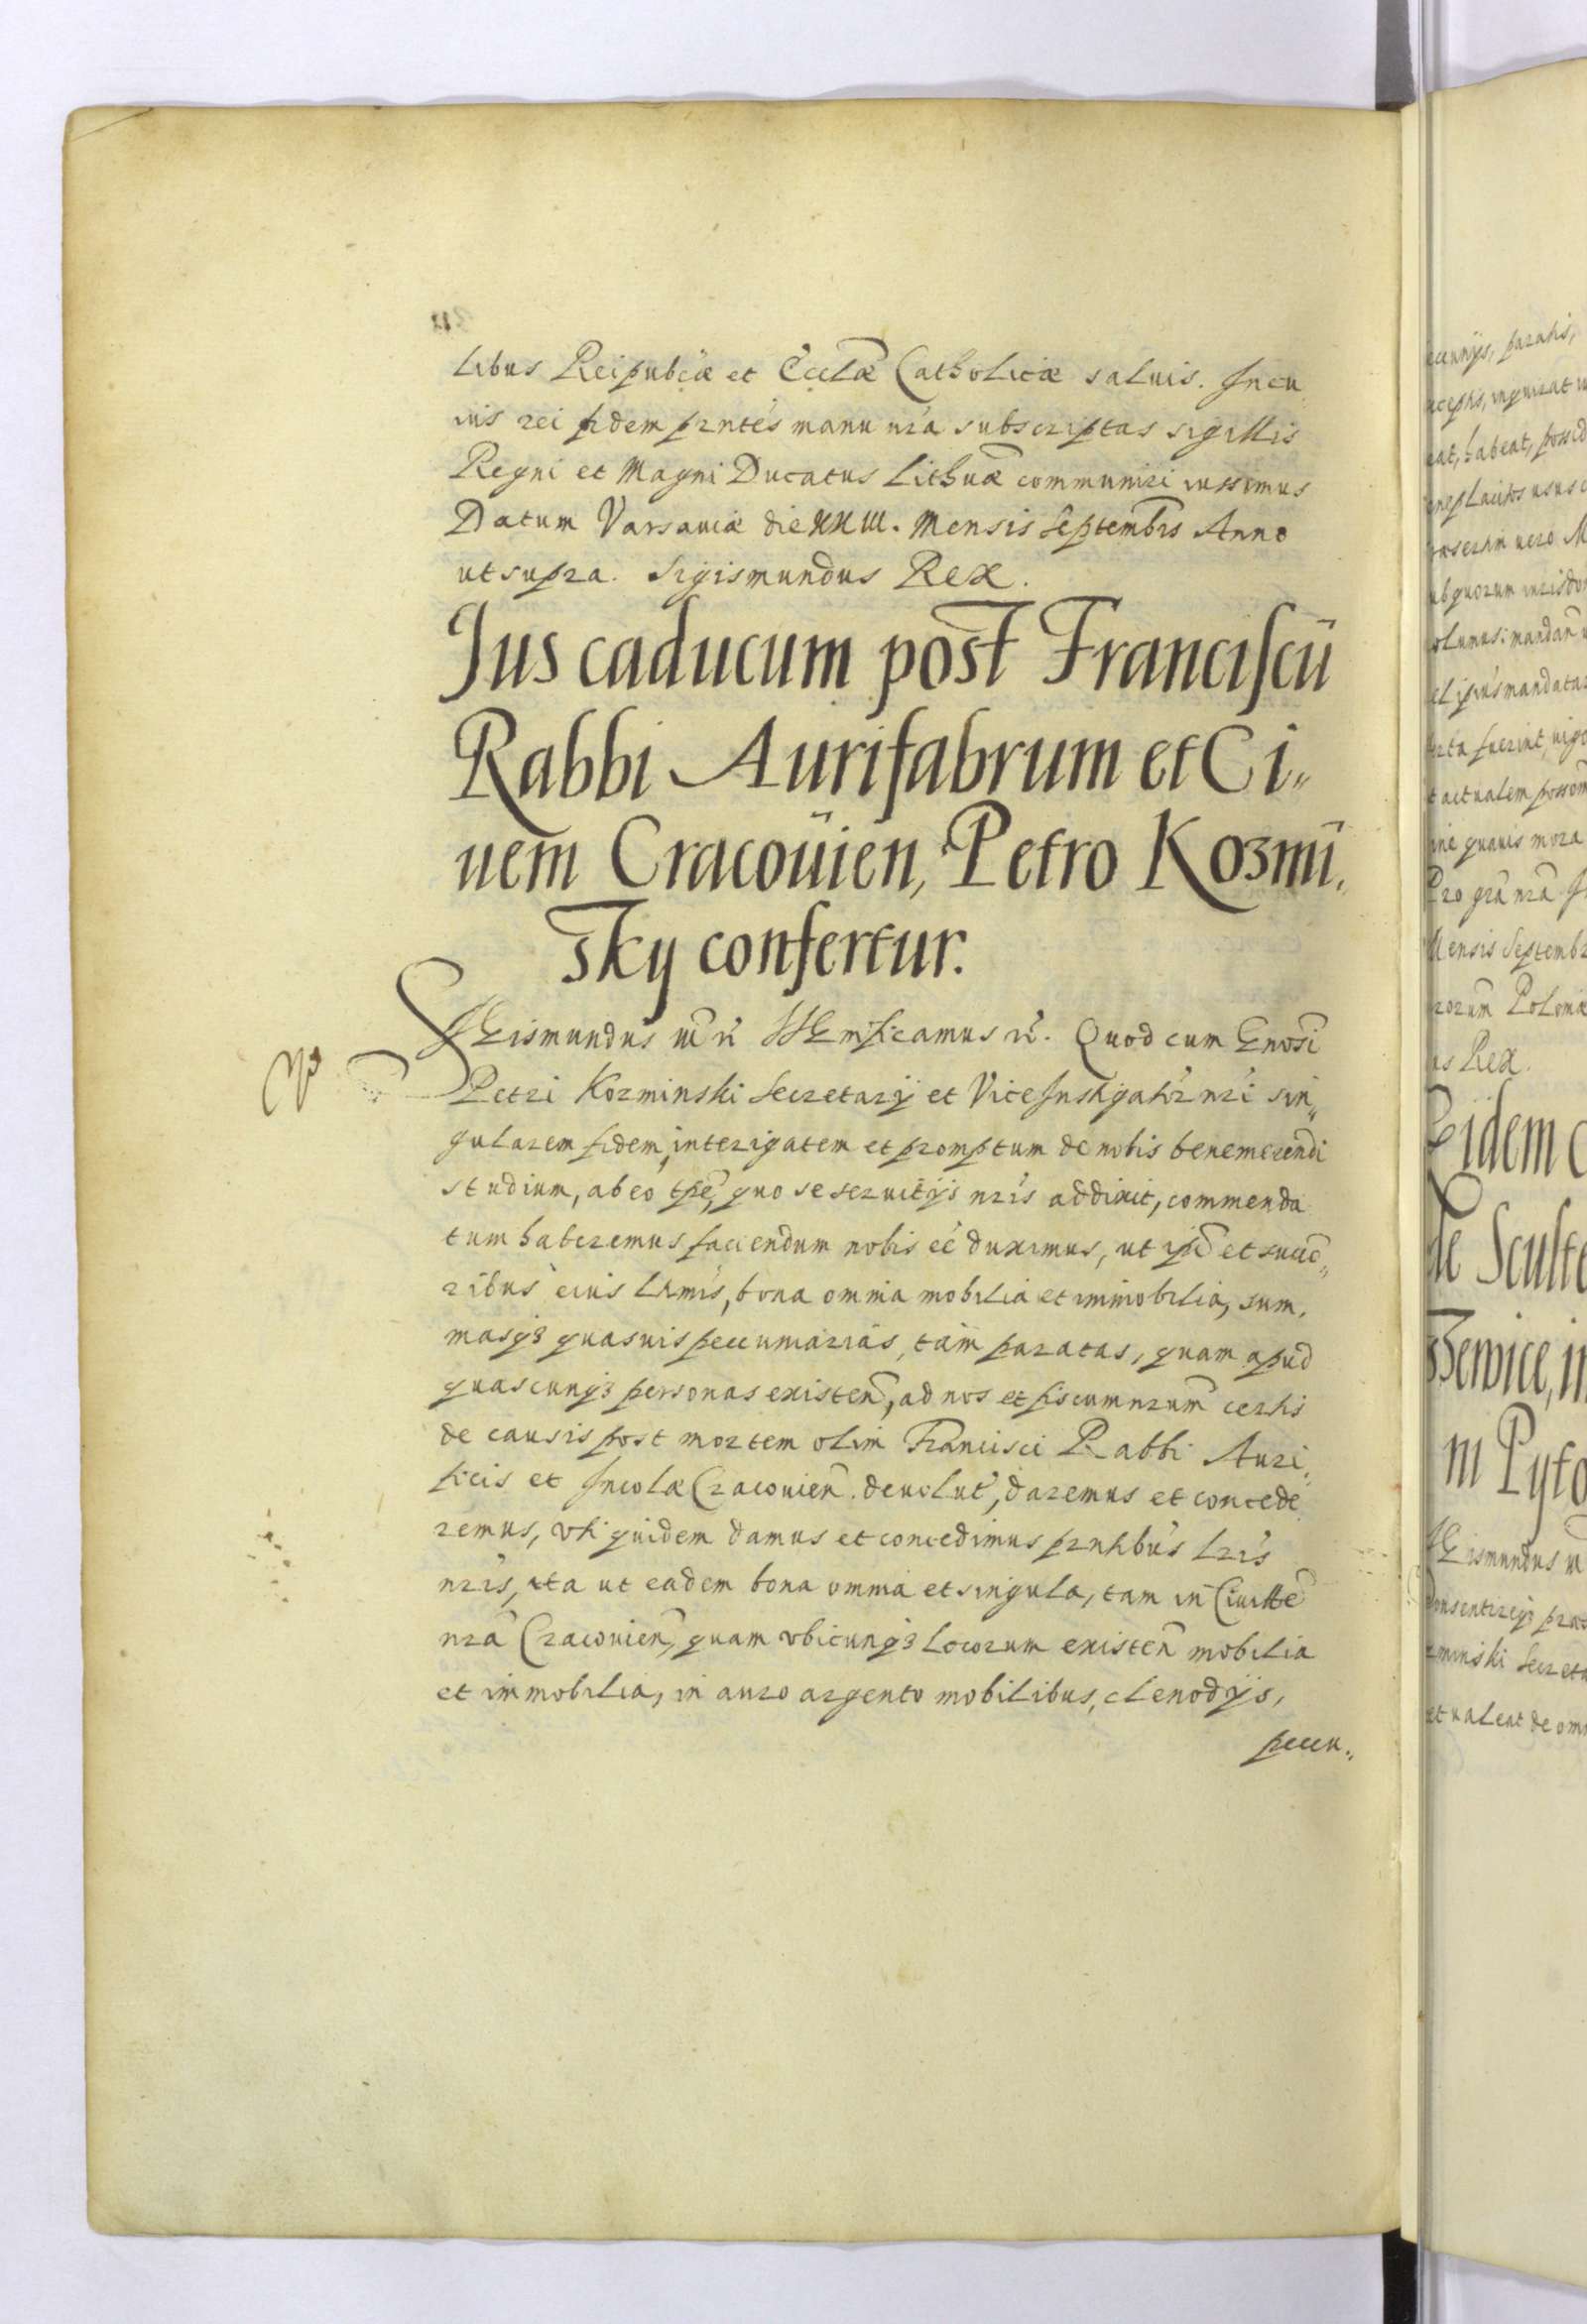 libus Reipubcæ et Ecclæ Catholicæ saluis. In cu
ius rei fidem pntes manu nra subscriptas sigillis
Regni et Magni Ducatus Lithuæ communiri iussimus
Datum Varsauiæ die XXIII. Mensis Septembris Anno
ut supra. Sigismundus Rex.
Jus caducum post Franciscū
Rabbi Aurifabrum et Ci„
uem Cracouien, Petro Kozmī„
sky confertur.
SIGismundus III
Significamus
Quod cum Gnosi
Petri Kozminski Secretarij et Vice Instigatīs nri sin„
gularem fidem, interigatem et promptum de nobis benemerendi
studium, ab eo tpe, quo se seruitijs nris addixit, commenda
tum haberemus faciendum nobis eē duximus, ut ipi et succ„
ribus eius ltimis, bona omnia mobilia et immobilia, sum„
masqꝫ quasuis pecuniarias, tam paratas, quam apud
quascunqꝫ personas existen, ad nos et fiscum nrum certis
de causis post mortem olim Francisci Rabbi Auri„
ficis et Incolæ Cracouien. deuolut, daremus et concede
remus, vti quidem damus et concedimus pntibus lris
nris, ita ut eadem bona omnia et singula, tam in Ciuitte
nra Cracouien, quam vbicunqꝫ locorum existen mobilia
et immobilia, in auro argento mobilibus, clenodijs,
pecu„
ecunijs, paratis,
eat, habeat, possid
Mensis Septembr
Rex.
Eidem c
de Sculte
m Pyto
IGismundus III
minski Secreta
et ualeat de omn